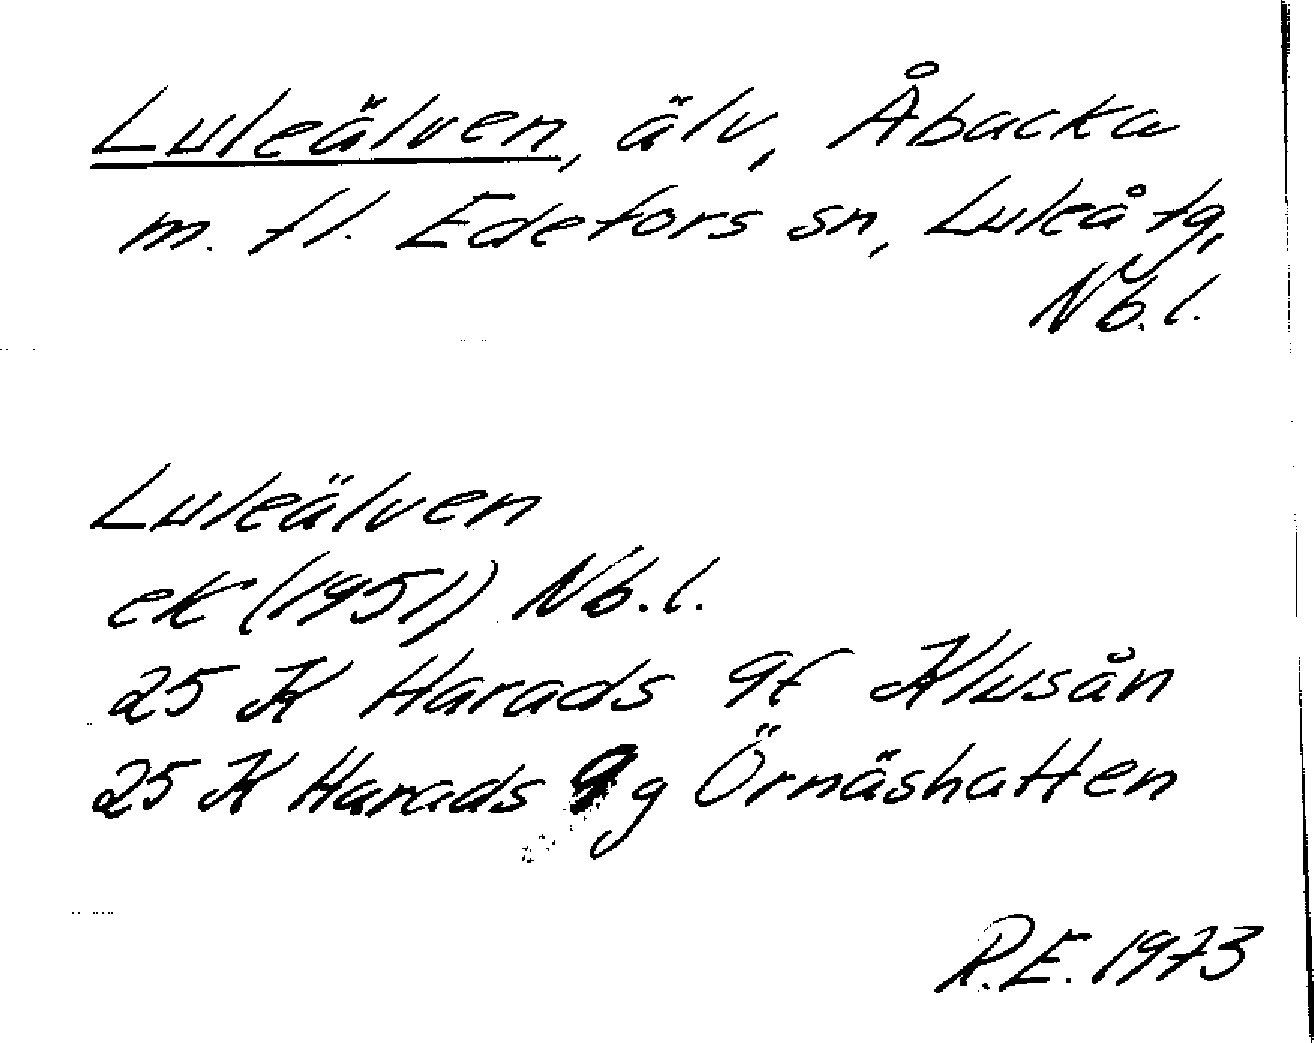 Luleälven, älv, Åbacka
m. fl. Edefors sn, Luleå tg,
Nb. l.
Luleälven
ek (1951) Nb. l.
25 K Harads 9f Klusån
25 K Harads 9g Örnäshatten
R.E. 1973